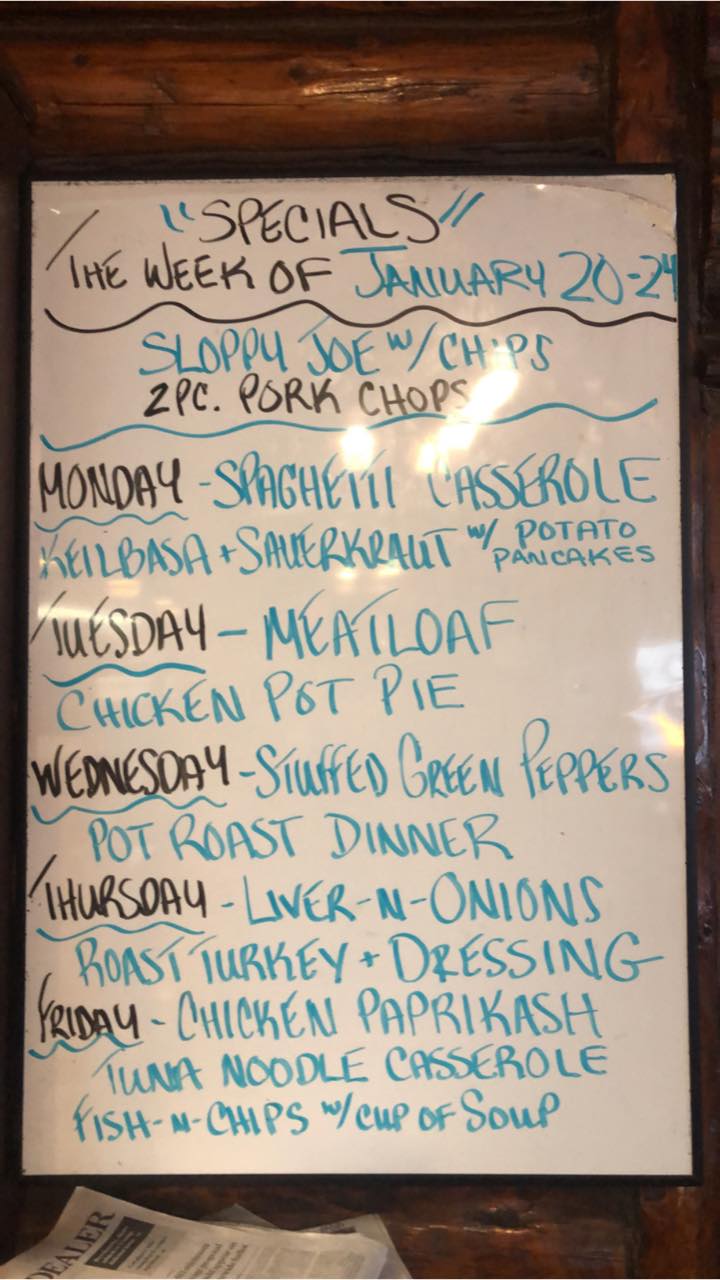 "SPECIALS"
THE WEEK OF JANUARY 20-24
SLOPPY JOE W/ CHIPS
2PC. PORK CHOPS
MONDAY - SPAGHETTI CASSEROLE
KEILBASA + SAUERKRAUT W/ POTATO PANCAKES
TUESDAY - MEATLOAF
CHICKEN POT PIE
WEDNESDAY - STUFFED GREEN PEPPERS
POT ROAST DINNER
THURSDAY - LIVER-N-ONIONS
ROAST TURKEY + DRESSING
FRIDAY - CHICKEN PAPRIKASH
TUNA NOODLE CASSEROLE
FISH-N-CHIPS W/ CUP OF SOUP
DEALER